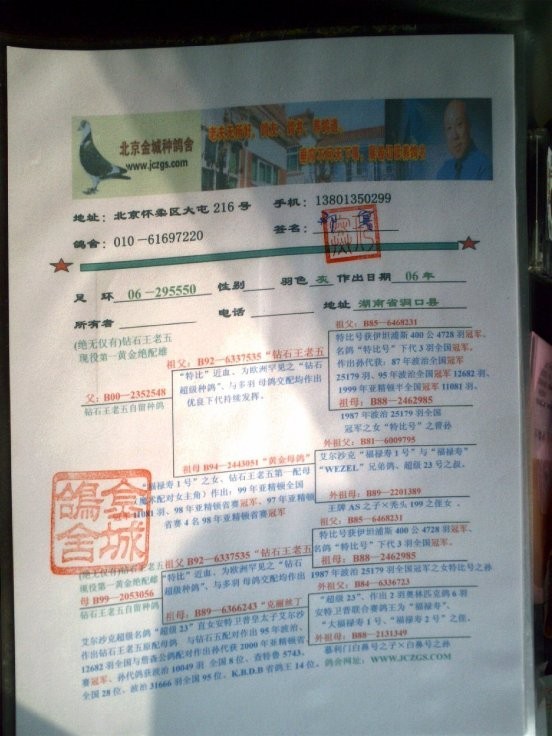 北京金城种鸽舍
www.jczgs.com
地址：北京怀柔区大屯 216 号 手机：13801350299
鸽舍：010-61697220 签名：
足 环 06-295550 性别 羽色 灰 作出日期 06 年
所有者 电话 地址 湖南省洞口县
(绝无仅有)钻石王老五
现役第一黄金绝配雌
父：B00-2352548
钻石王老五自留种鸽
祖父：B92-6337535 "钻石王老五
"特比"近血、为欧洲罕见之"钻石
超级种鸽"、与多羽 母鸽交配均作出
优良下代持续发挥。
祖父：B85-6468231
特比号获伊坦浦斯 400 公 4728 羽冠军、
名鸽"特比号"下代 3 羽全国冠军。
作出孙代获：87 年波治全国
25179 羽、95 年波治全国冠军 12682 羽、
1999 年亚精顿半全国冠军 11081 羽。
祖母：B88-2462985
1987 年波治 25179 羽全国
冠军之女"特比号"之曾孙
祖母 B94-2443051 "黄金母鸽"
"福禄寿 1 号"之女、钻石王老五第一配母
魔术配对女主角）作出：99 年亚精顿全国
11081 羽、98 年亚精顿省赛冠军、97 年亚精顿
省赛 4 名 98 年亚精顿省赛冠军
外祖父：B81-6009795
艾尔沙克"福禄寿 1 号"与"福禄寿"
"WEZEL"兄弟鸽、超级 23 号之叔。
外祖母：B89-2201389
王牌 AS 之子×秃头 199 之侄女 。
金城
鸽舍
(绝无仅有)钻石王老五
现役第一黄金绝配雌
母 B99-2053056
钻石王老五自留种鸽
祖父 B92-6337535 "钻石王老五
"特比"近血、为欧洲罕见之"钻石
超级种鸽"、与多羽 母鸽交配均作出
优良下代持续发挥。
祖父：B85-6468231
特比号获伊坦浦斯 400 公 4728 羽冠军、
名鸽"特比号"下代 3 羽全国冠军。
祖母：B88-2462985
1987 年波治 25179 羽全国冠军之女特比号之孙
祖母：B89-6366243 "克丽丝丁
外祖父：B84-6336723
"超级 23"、作出 2 羽奥林匹克鸽 6 羽
安特卫普联合赛鸽王为"福禄寿"、
"大福禄寿 1 号、"福禄寿 2 号"之侄。
外祖母：B88-2131349
慕利门白鼻号之子×白鼻号之孙
艾尔沙克超级名鸽"超级 23"直女安特卫普皇太子艾尔沙
作出钻石王老五原配母鸽 与钻石王五配对作出 95 年波治、
12682 羽全国与詹森公鸽配对作出孙代获 2000 年亚精顿省
赛冠军、孙代鸽获波治 10049 羽 全国 8 位、查特鲁 5743、
全国 28 位、波治 31666 羽全国 95 位、K.B.D.B 省鸽王 14 位。
鸽舍网址：WWW.JCZGS.COM